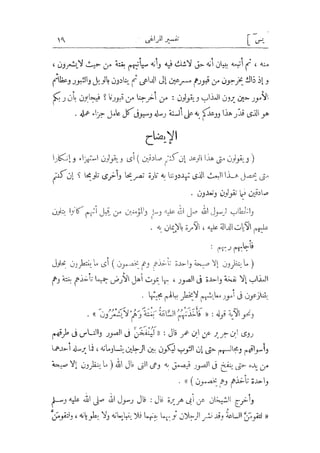 يس ]
تفسير المراغى
١٩
منه ، ثم أتبعه ببيان أنه حق لاشك فيه وأنه سيأتيهم بغتة من حيث لا يشعرون ،
و إذ ذاك يخرجون من قبورهم مسرعين إلى الداعى ثم ينادون بالويل والثبور وعظائم
الأمور حين يرون العذاب ويقولون : من أخرجنا من قبورنا ؟ فيجابون بأن ربكم
هو الذى قدّر هذا ووعدكم به على ألسنة رسله وسيوفى كل عامل جزاء عمله .
الإيضاح
( ويقولون متى هذا الوعد إن كنتم صادقين ) أى ويقولون استهزاء و إنكارا
متى يحصل هذا البعث الذى تهددوننا به تارة تصريحا وأخرى تلويحا ؟ إن كنتم
صادقين فيما تقولون وتعدون .
والخطاب لرسول الله صلى الله عليه وسلم والمؤمنين من قِبل أنهم كانوا يتلون
عليهم الآيات الدالة عليه ، الآمرة بالإيمان به .
فأجابهم ربهم :
( ما ينظرون إلا صيحة واحدة تأخذهم وهم يخصمون ) أى ما ينتظرون بحلول
العذاب إلا نفخة واحدة فى الصور ، بها يموت أهل الأرض جميعا تأخذهم بغتة وهم
يتنازعون فى أمور معايشهم لا يخطر ببالهم مجيئها .
ونحو الآية قوله : « فَأَخَذَتْهُمُ السَّاعَةُ بَغْتَةً وَهُمْ لَا يَشْعُرُونَ » .
روى ابن جرير عن ابن عمر قال : « لَيُنْفَخَنَّ فى الصور والناس فى طرقهم
وأسواقهم ومجالسهم حتى إن الثوب ليكون بين الرجلين يتساومانه ، فما يرسله أحدهما
من يده حتى ينفخ فى الصور فيصعق به وهى التى قال الله ( ما ينظرون إلا صيحة
واحدة تأخذهم وهم يخصمون ) » .
وأخرج الشيخان عن أبى هريرة قال : قال رسول الله صلى الله عليه وسلم
« لتقومنّ الساعةُ وقد نشر الرجلان ثوبهما بينهما فلا يتبايعانه ولا يطويانه ، ولتقومنّ